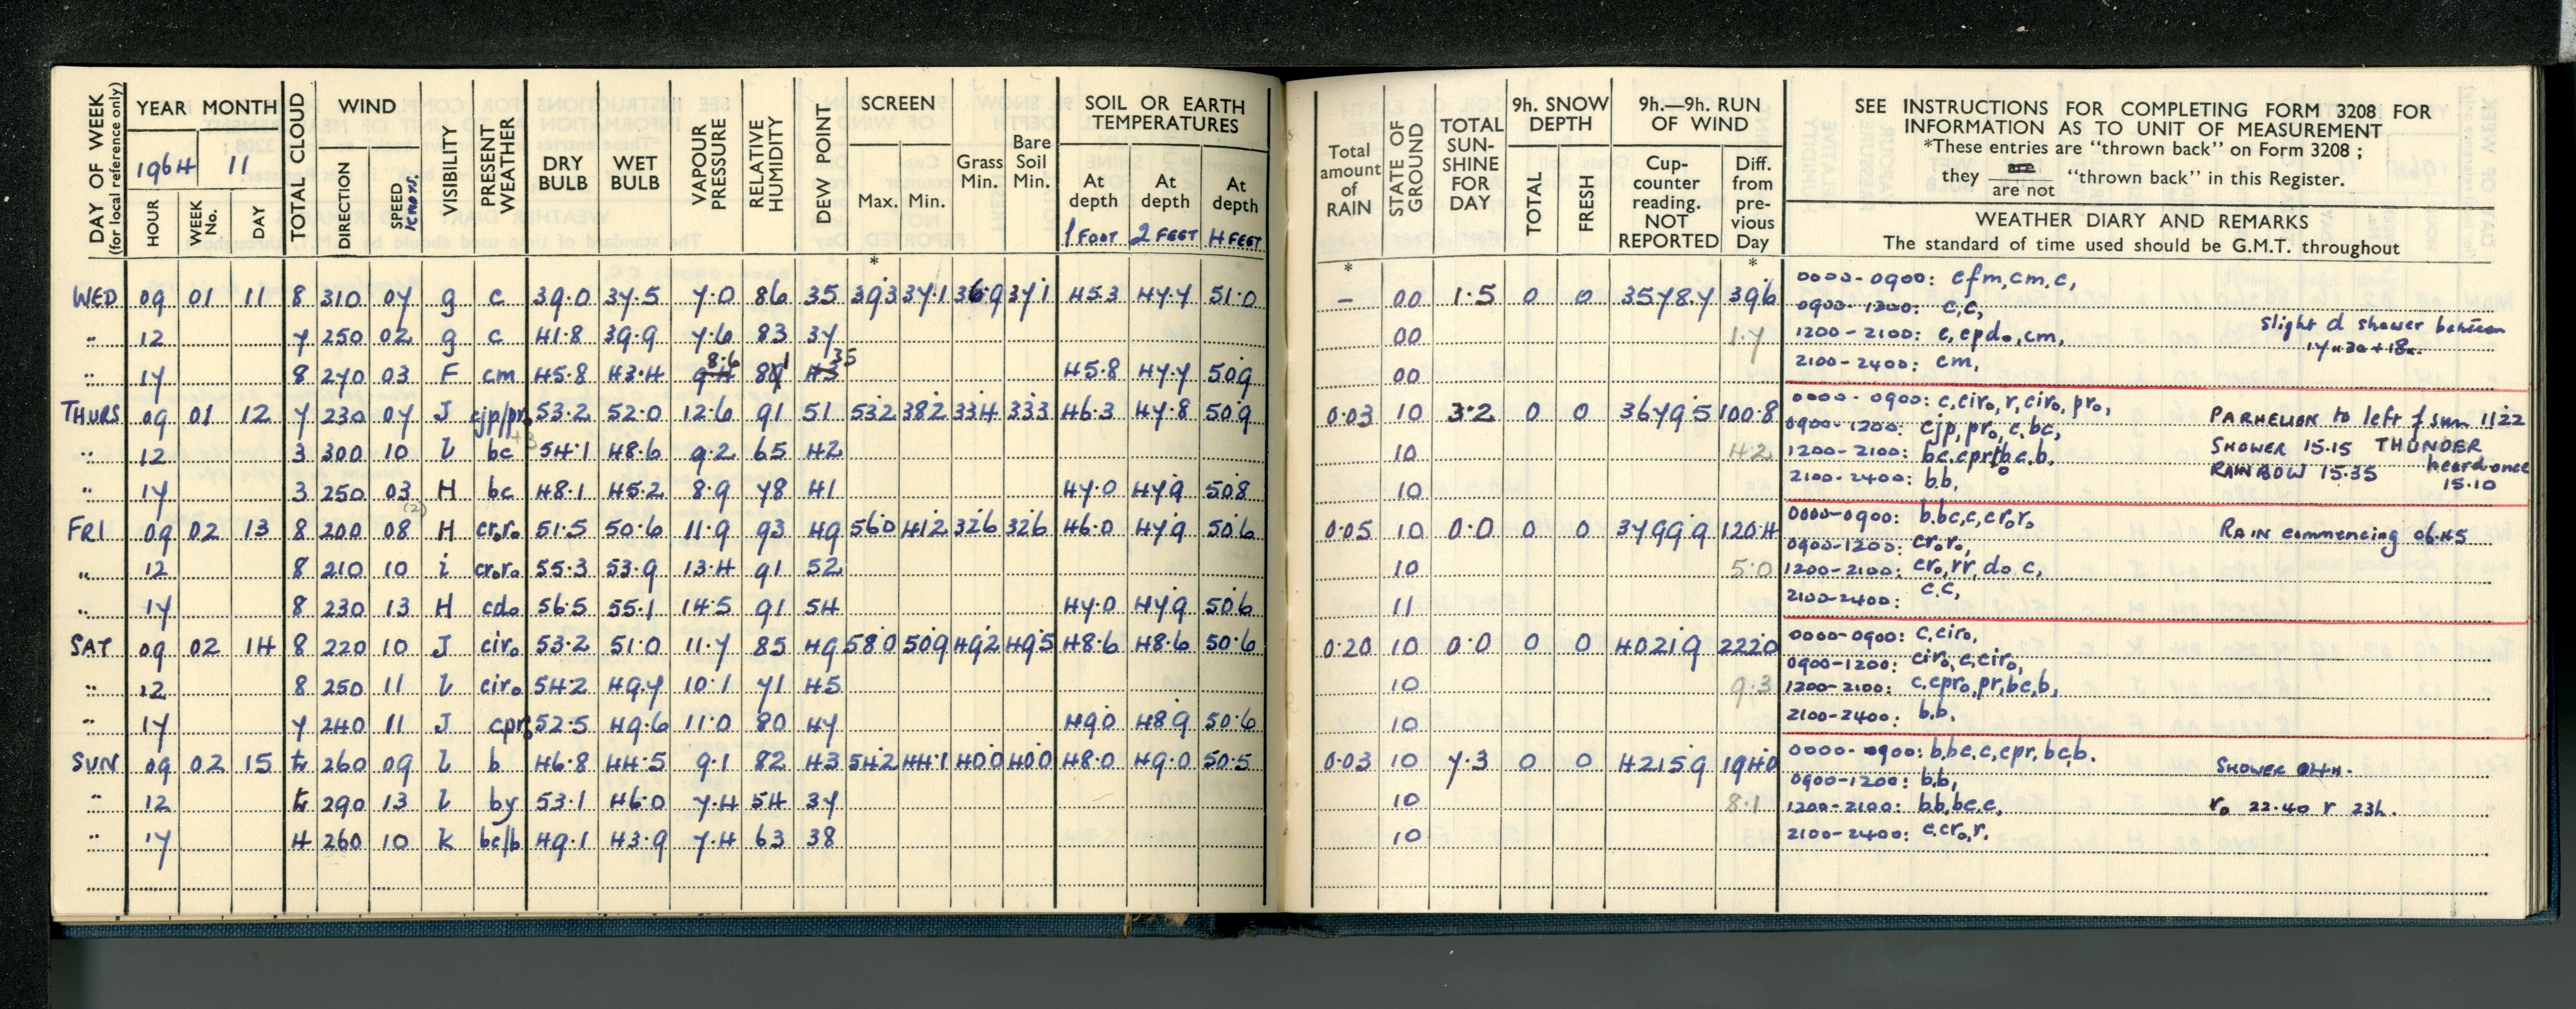 DAY OF WEEK (for local reference only) YEAR MONTH TOTAL CLOUD WIND VISIBILITY PRESENT WEATHER DRY BULB WET BULB VAPOUR PRESSURE RELATIVE HUMIDITY DEW POINT SCREEN SOIL OR EARTH TEMPERATURES
1964 11
HOUR WEEK No. DAY DIRECTION SPEED KNOTS. Max. Min. Grass Min. Bare Soil Min. At depth At depth At depth
1 FOOT 2 FEET 4 FEET
*
Total amount of RAIN STATE OF GROUND TOTAL SUN-SHINE FOR DAY 9h. SNOW DEPTH 9h.—9h. RUN OF WIND
TOTAL FRESH Cup-counter reading. NOT REPORTED Diff. from pre-vious Day
* *
SEE INSTRUCTIONS FOR COMPLETING FORM 3208 FOR
INFORMATION AS TO UNIT OF MEASUREMENT
*These entries are "thrown back" on Form 3208 ;
they are / are not "thrown back" in this Register.
WEATHER DIARY AND REMARKS
The standard of time used should be G.M.T. throughout
WED 09 01 11 8 310 07 g c 39.0 37.5 7.0 86 35 39.3 37.1 36.9 37.1 45.3 47.7 51.0 – 00 1.5 0 0 3578.7 39.6 0000-0900: cfm,cm,c,
0900-1200: c,c,
" 12 7 250 02 g c 41.8 39.9 7.6 83 37 00 1.7 1200-2100: c,cpdo,cm, slight d shower between
17.30 + 18
" 17 8 270 03 F cm 45.8 43.4 8.6 81 35 45.8 47.7 50.9 00 2100-2400: cm,
THURS 09 01 12 7 230 07 J cjp/pro 53.2 52.0 12.6 91 51 53.2 38.2 33.4 33.3 46.3 47.8 50.9 0.03 10 3.2 0 0 3679.5 100.8 0000-0900: c,ciro,r,ciro,pro, PARHELION to left of sun 1122
0900-1200: cjp,pro,c,bc,
" 12 3 300 10 l bc 54.1 48.6 9.2 65 42 10 4.2 1200-2100: SHOWER 15.15 THUNDER heard once 15.10
" 17 3 250 03 H bc 48.1 45.2 8.9 78 41 47.0 47.9 50.8 10 2100-2400: b.b, RAINBOW 15.35
(2)
FRI 09 02 13 8 200 08 H croro 51.5 50.6 11.9 93 49 56.0 41.2 32.6 32.6 46.0 47.9 50.6 0.05 10 0.0 0 0 3799.9 120.4 0000-0900: b.bc,c,croro, RAIN commencing 06.45
0900-1200: croro,
" 12 8 210 10 i croro 55.3 53.9 13.4 91 52 10 5.0 1200-2100: cro,rr,do c,
" 17 8 230 13 H cdo 56.5 55.1 14.5 91 54 47.0 47.9 50.6 11 2100-2400: c.c,
SAT 09 02 14 8 220 10 J ciro 53.2 51.0 11.7 85 49 58.0 50.9 49.2 49.5 48.6 48.6 50.6 0.20 10 0.0 0 0 4021.9 222.0 0000-0900: c,ciro,
0900-1200: ciro,c,ciro,
" 12 8 250 11 l ciro 54.2 49.7 10.1 71 45 10 9.3 1200-2100: c,cpro,pr,bc,b,
" 17 7 240 11 J cpro 52.5 49.6 11.0 80 47 49.0 48.9 50.6 10 2100-2400: b.b.
SUN 09 02 15 tr 260 09 l b 46.8 44.5 9.1 82 43 54.2 44.1 40.0 40.0 48.0 49.0 50.5 0.03 10 7.3 0 0 4215.9 194.0 0000-0900: b,bc,c,cpr,bc,b. SHOWER 04H.
0900-1200: b.b,
" 12 tr 290 13 l by 53.1 46.0 7.4 54 37 10 8.1 1200-2100: b.b,bc,c, ro 22.40 r 23h.
" 17 4 260 10 k bc/b 49.1 43.9 7.4 63 38 10 2100-2400: c,cro,r.